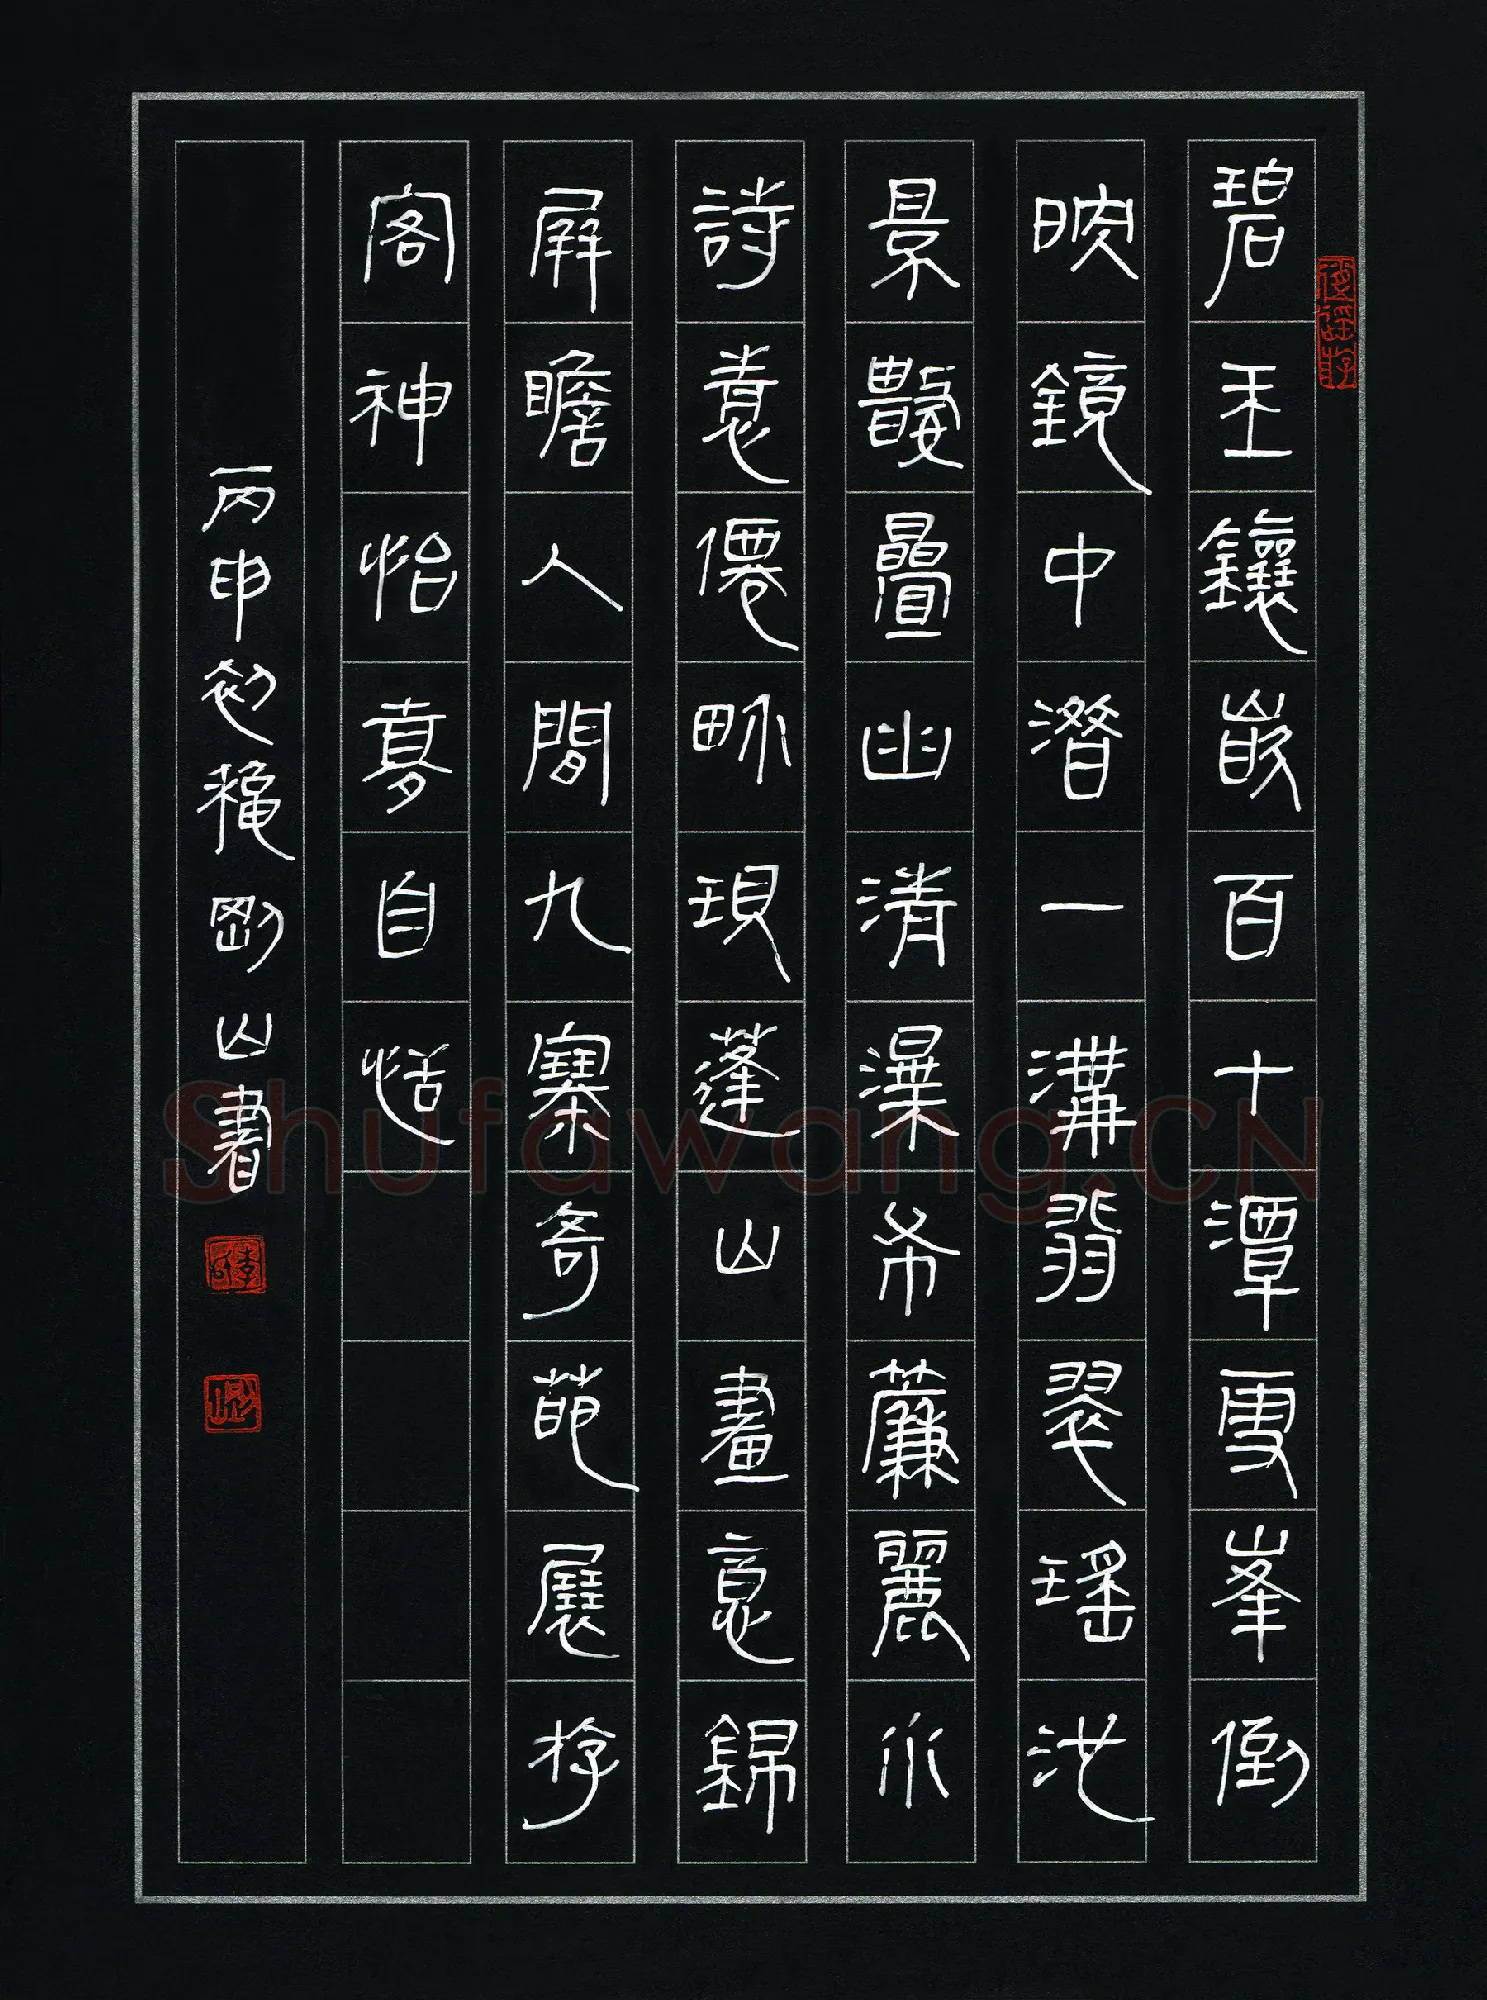 碧玉鑲嵌百十潭雪峯倒
映鏡中潛一溝翡翠瑤池
景數疊幽清瀑布簾麗水
詩僊界現蓬山畫意錦
屏瞻人間九寨奇葩展遊
客神怡夢自恬
丙申初穐剛山書
Shufawang.CN